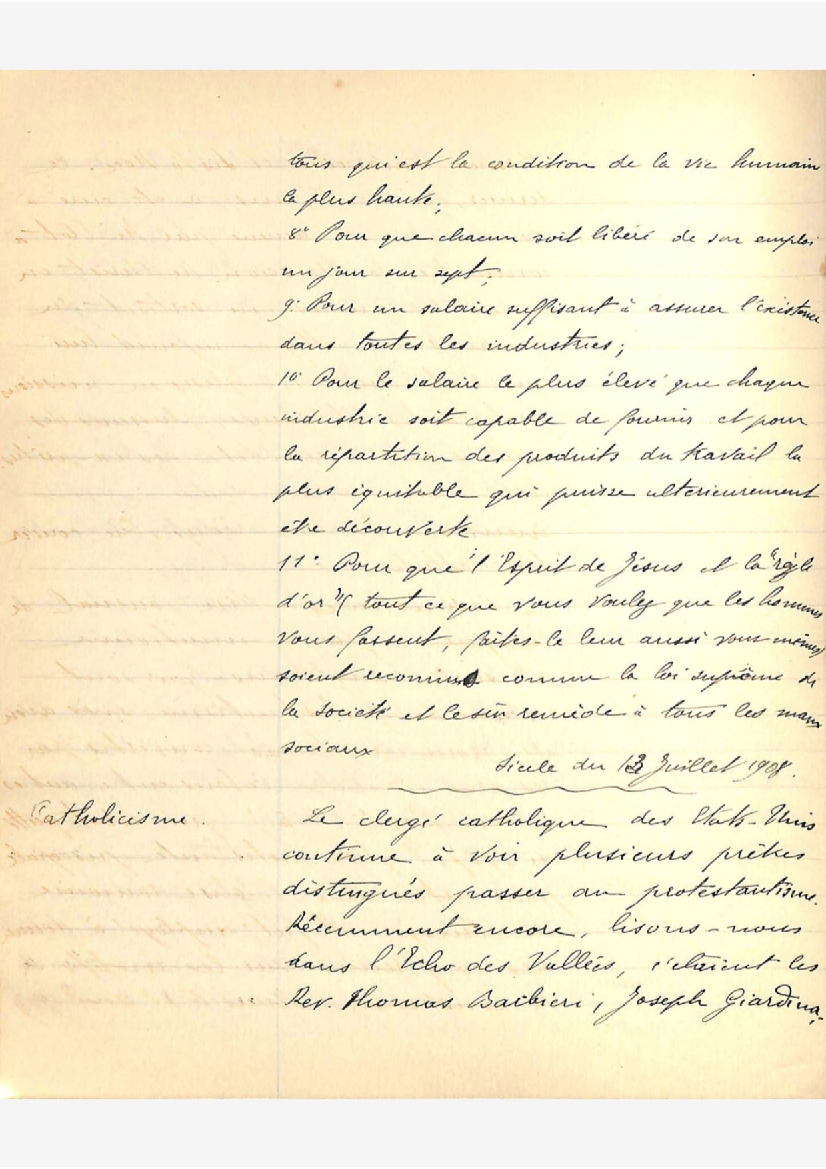 tous qui est la condition de la vie humain
la plus haute;
8° Pour que chacun soit libéré de son emploi
un jour sur sept;
9° Pour un salaire suffisant à assurer l'existence
dans toutes les industries;
10 Pour le salaire le plus élevé que chaque
industrie soit capable de fournir et pour
la répartition des produits du travail la
plus équitable qui puisse ultérieurement
être découverte
11° Pour que l'Esprit de Jésus et la "règle
d'or" (tout ce que vous voulez que les hommes
vous fassent, faites-le leur aussi vous-mêmes)
soient reconnus comme la loi suprême de
la société et le sûr remède à tous les maux
sociaux
Siècle du 13 Juillet 1908.
Catholicisme.
Le clergé catholique des Etats-Unis
continue à voir plusieurs prêtres
distingués passer au protestantisme.
Récemment encore, lisons-nous
dans l'Echo des Vallées, c'étaient les
Rev. Thomas Barbieri, Joseph Giardina,